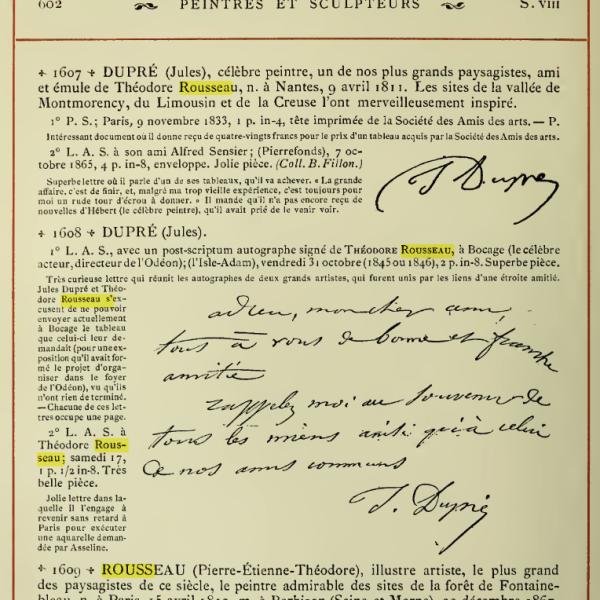 602 PEINTRES ET SCULPTEURS S. VIII
1607 DUPRÉ (Jules), célèbre peintre, un de nos plus grands paysagistes, ami
et émule de Théodore Rousseau, n. à Nantes, 9 avril 1811. Les sites de la vallée de
Montmorency, du Limousin et de la Creuse l'ont merveilleusement inspiré.
1° P. S.; Paris, 9 novembre 1833, 1 p. in-4, tête imprimée de la Société des Amis des arts. — P.
Intéressant document où il donne reçu de quatre-vingts francs pour le prix d'un tableau acquis par la Société des Amis des arts.
2° L. A. S. à son ami Alfred Sensier; (Pierrefonds), 7 oc-
tobre 1865, 4 p. in-8, enveloppe. Jolie pièce. (Coll. B. Fillon.)
Superbe lettre où il parle d'un de ses tableaux, qu'il va achever. « La grande
affaire, c'est de finir, et, malgré ma trop vieille expérience, c'est toujours pour
moi un rude tour d'écrou à donner. » Il mande qu'il n'a pas encore reçu de
nouvelles d'Hébert (le célèbre peintre), qu'il avait prié de le venir voir.
J Dupré
1608 DUPRÉ (Jules).
1° L. A. S., avec un post-scriptum autographe signé de THÉODORE ROUSSEAU, à Bocage (le célèbre
acteur, directeur de l'Odéon); (l'Isle-Adam), vendredi 31 octobre (1845 ou 1846), 2 p. in-8. Superbe pièce.
Très curieuse lettre qui réunit les autographes de deux grands artistes, qui furent unis par les liens d'une étroite amitié.
Jules Dupré et Théo-
dore Rousseau s'ex-
cusent de ne pouvoir
envoyer actuellement
à Bocage le tableau
que celui-ci leur de-
mandait (pour une ex-
position qu'il avait for-
mé le projet d'orga-
niser dans le foyer
de l'Odéon), vu qu'ils
n'ont rien de terminé.
— Chacune de ces let-
tres occupe une page.
2° L. A. S. à
Théodore Rous-
seau; samedi 17,
1 p. 1/2 in-8. Très
belle pièce.
Jolie lettre dans la-
quelle il l'engage à
revenir sans retard à
Paris pour exécuter
une aquarelle deman-
dée par Asseline.
adieu, mon cher ami,
tout à vous de bonne et franche
amitié
rappelez moi au souvenir de
tous les miens ainsi qu'à celui
de nos amis communs
J. Dupré
1609 ROUSSEAU (Pierre-Étienne-Théodore), illustre artiste, le plus grand
des paysagistes de ce siècle, le peintre admirable des sites de la forêt de Fontaine-